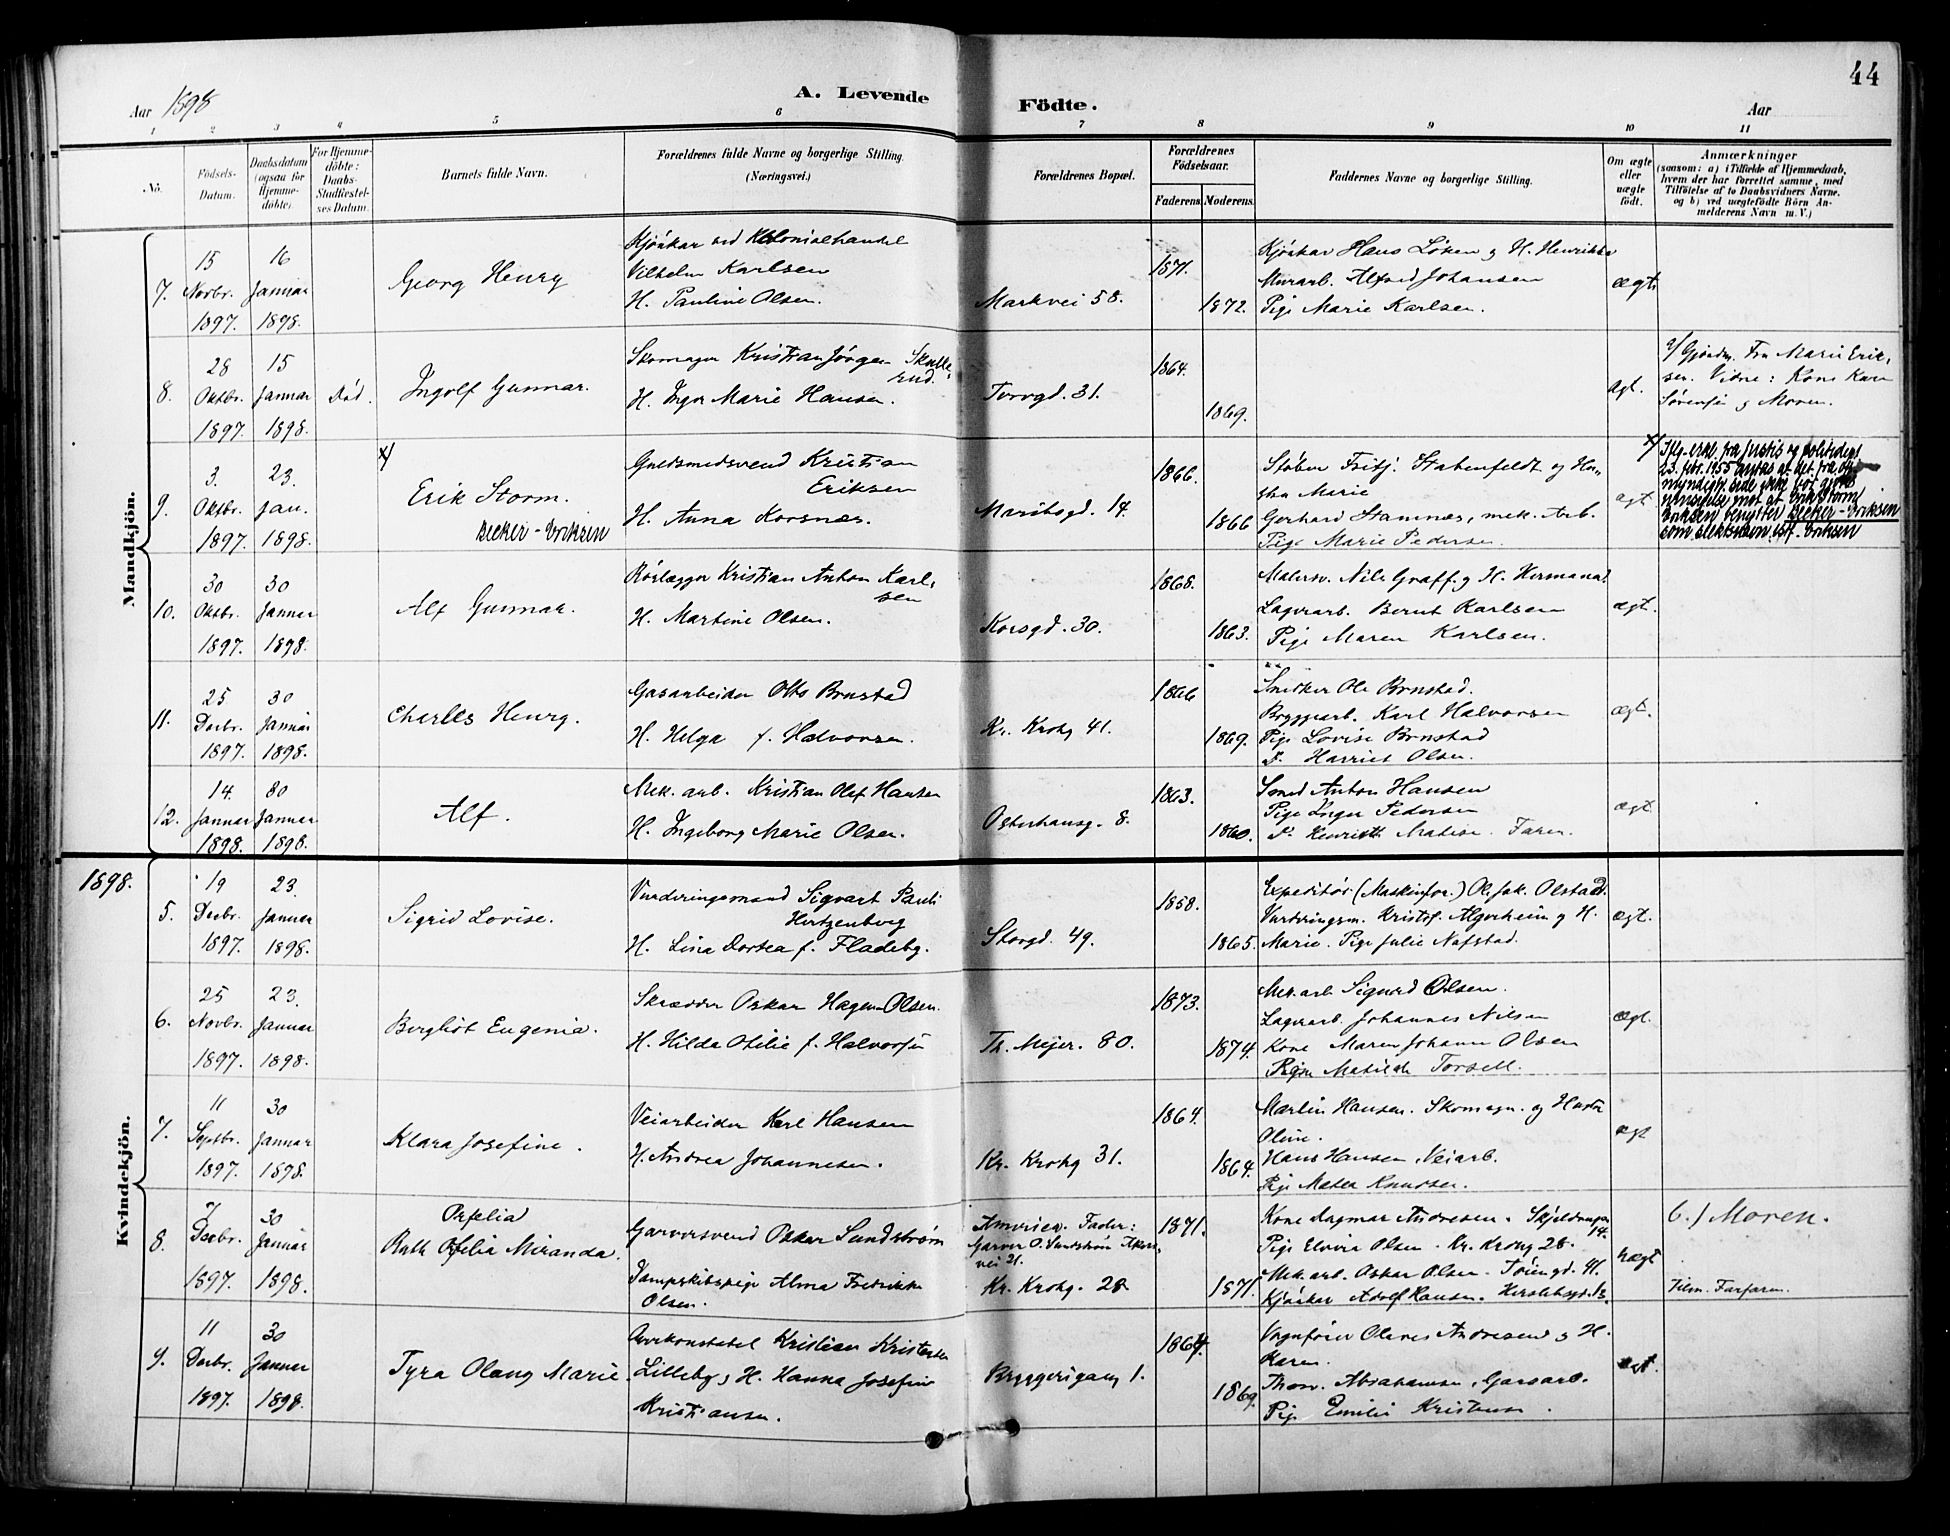 44
Aar 1898
A. Levende Födte.
Aar
1 2 3 4 5 6 7 8 9 10 11
No.
Födsels-Datum.
Daabsdatum (ogsaa for Hjemme-döbte)
For Hjemme-döbte: Daabs-Stadfæstel-ses Datum.
Barnets fulde Navn.
Forældrenes fulde Navne og borgerlige Stilling. (Næringsvei.)
Forældrenes Bopæl.
Forældrenes Födselsaar.
Faderens. Moderens.
Faddernes Navne og borgerlige Stilling.
Om ægte eller uægte födt.
Anmærkninger
(saasom: a) i Tilfælde af Hjemmedaab,
hvem der har forrettet samme, med
Tilföielse af to Daabsvidners Navne,
og b) ved uægtefödte Börn An-
melderens Navn m. V.)
Mandkjön.
7.
15 Novbr. 1897.
16 Januar 1898.
Georg Henry
Kjøkar ved Kolonialhandel
Vilhelm Karlsen
H. Pauline Olsen.
Markvei 58.
1871.
1872.
Kjøkar Hans Løken og H. Henrikke
Murarb. Alfred Johansen
Pige Marie Karlsen.
ægte
8.
28 Oktbr. 1897.
15 Januar 1898.
Død.
Ingolf Gunnar.
Skomager Kristian Jørgen Skulle-
rud.
H. Inga Marie Hansen.
Torvgd. 31.
1864.
1869.
ægt.
a/ Gjordm. Fru Marie Erik-
sen. Vidne: Kone Karn
Sørensen og Moren.
9.
3. Oktbr. 1897.
23. Jan. 1898.
x/
Erik Storm.
Becker-Eriksen
Guldsmedsvend Kristian
Eriksen
H. Anna Korsnæs.
Maribogd. 14.
1866.
1866
Støber Fritj. Stabenfeldt og Hu-
stru Marie
Gerhard Stamnæs, mek. Arb.
Pige Marie Pedersen.
ægt.
x/ Iflg. erkl. fra Justis og politidept
23. febr. 1955 antas at det fra dep.
myndigh. side ikke bør gjøres
innsigelse mot at Erik Storm
Eriksen benytter Becker-Eriksen
som slektsnavn istf. Eriksen
10.
30 Oktbr. 1897.
30 Januar 1898.
Alf Gunnar.
Rørlægger Kristian Anton Karl-
sen
H. Martine Olsen.
Korsgd. 30.
1868.
1863.
Malersv. Nils Graff. og H. Hermana.
Lagerarb. Bernt Karlsen
Pige Maren Karlsen.
ægt.
11.
25 Decbr. 1897.
30 Januar 1898.
Charles Henry.
Gasarbeider Otto Brnstad
H. Helga f. Halvorsen.
Kr. Krohg 41.
1866
1869.
Snedker Ole Brnstad.
Bryggearb. Karl Halvorsen
Pige Lovise Brnstad
D. Harriet Olsen.
ægt.
12.
14. Januar 1898.
30 Januar 1898.
Alf.
Mek. arb. Kristian Olaf Hansen
H. Ingeborg Marie Olsen.
Osterhausg. 8.
1863.
1860.
Smed Anton Hansen
Pige Inger Pedersen
ægt
1898.
Kvindekjön.
5.
19 Decbr. 1897.
23. Januar 1898.
Sigrid Lovise.
Vurderingsmand Sigvart Pauli
Hertzenberg
H. Lina Dorthea f. Fladeby.
Storgd. 49.
1858.
1865.
Expeditör (Maskinfor.) Ol. Jak. Olstad.
Vurderingsm. Kristof. Algerheim og H.
Marie. Pige Julie Nafstad.
ægt.
6.
25 Novbr. 1897.
23. Januar 1898.
Bergliot Eugenia.
Skrædder Oskar Hagem Olsen.
H. Hilda Otilie f. Halvorsen
Th. Mejer. 80.
1873.
1874.
Mek. arb. Sigurd Olsen.
Lagerarb. Johannes Nilsen
Kone Maren Johanne Olsen
Pigen Matilde Torsell.
ægt.
7.
11 Septbr. 1897.
30 Januar 1898.
Klara Josefine.
Veiarbeider Karl Hansen
H. Andrea Johannesen.
Kr. Krohg 31.
1864.
1864.
Martin Hansen. Skomagr. og Hustr
Oline.
Hans Hansen, Veiarb.
Pige Mathea Knudsen.
ægt
8.
7 Decbr. 1897.
30 Januar 1898.
Orfelia
Ruth Offelia Miranda.
Garversvend Oskar Sundstrøm
Dampskibspige Alma Fredrikke
Olsen.
Amerika. Fader:
Garver O. Sundstrøm Akers-
vei 21.
Kr. Krohg. 28
1871.
1871.
Kone Dagmar Andresen. Skjeldrupsg
14.
Pige Elvira Olsen. Kr. Krohg 28.
Mek. arb. Oskar Olsen. Tøiengd. 41.
Kjøskar Adolf Hansen. Herslebsgd. 13.
uægt
6.) Moren.
Tilm. Farfaren.
9.
11 Decbr. 1897.
30 Januar 1898.
Tyra Olaug Marie.
Overkonstabel Kristian Kristensen
Lilleby, H. Hanna Josefine
Kristiansen.
Bryggerigang 1.
1864.
1869.
Vognfører Olaves Andresen og H.
Karen.
Thorv. Abrahamsen, Garvarb.
Pige Emilie Kristensen.
ægt.